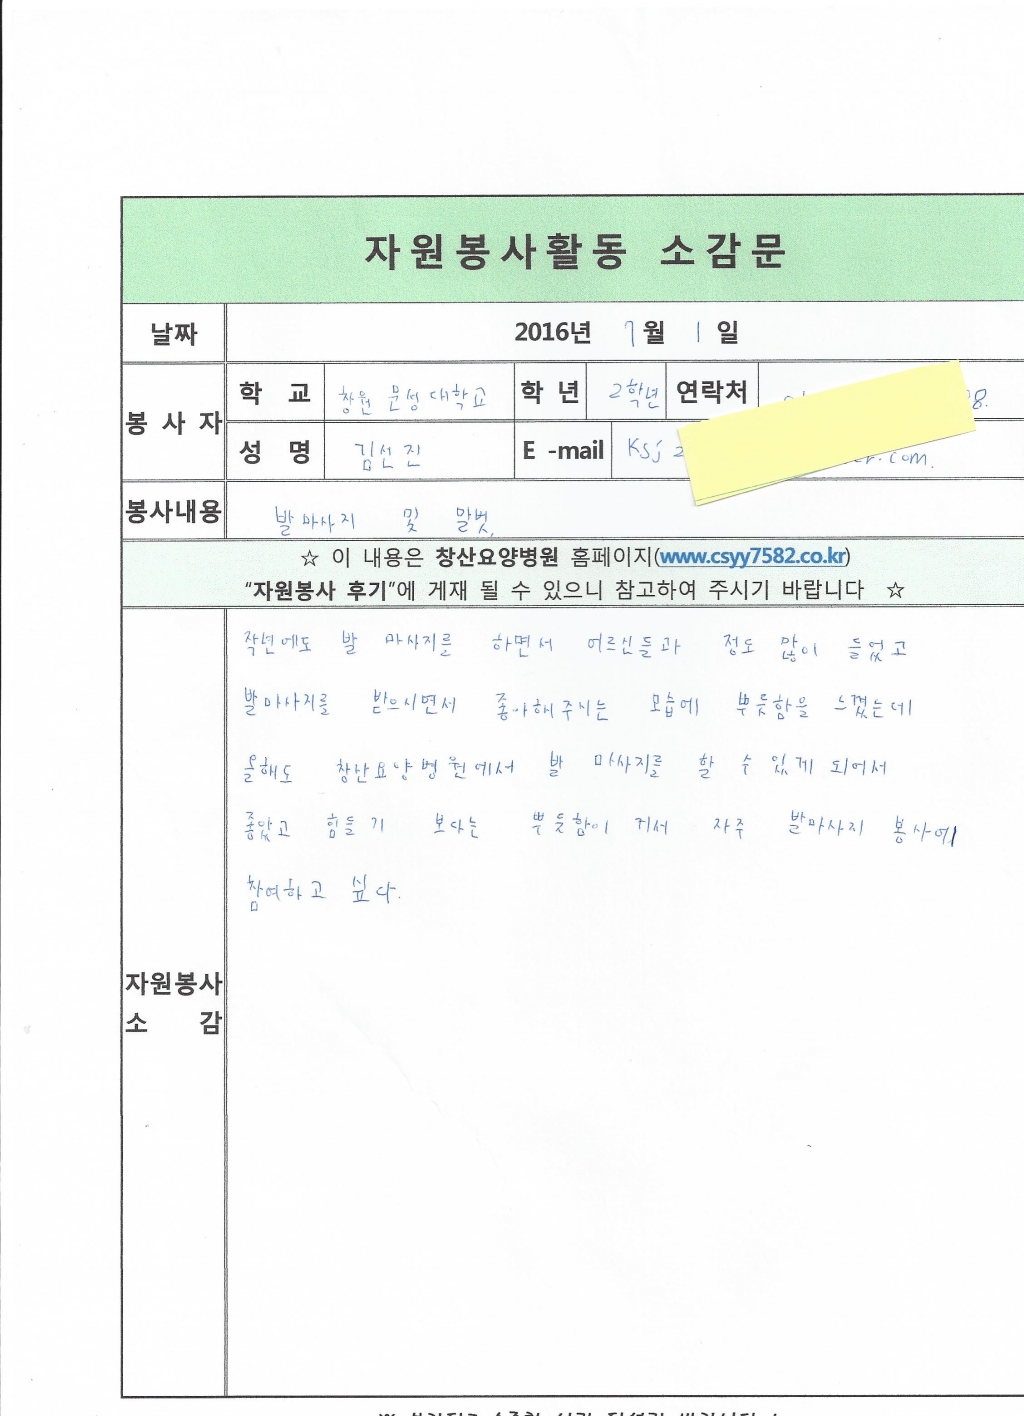 자원봉사활동 소감문
날짜 2016년 7월 1일
봉사자 학 교 창원 문성대학교 학 년 2학년 연락처 98.
성 명 김선진 E -mail ksj com.
봉사내용 발마사지 및 말벗
☆ 이 내용은 창산요양병원 홈페이지(www.csyy7582.co.kr)
“자원봉사 후기”에 게재 될 수 있으니 참고하여 주시기 바랍니다 ☆
작년에도 발 마사지를 하면서 어르신들과 정도 많이 들었고
발마사지를 받으시면서 좋아해주시는 모습에 뿌듯함을 느꼈는데
올해도 창산요양병원에서 발 마사지를 할 수 있게 되어서
좋았고 힘들기 보다는 뿌듯함이 커서 자주 발마사지 봉사에
참여하고 싶다.
자원봉사
소 감